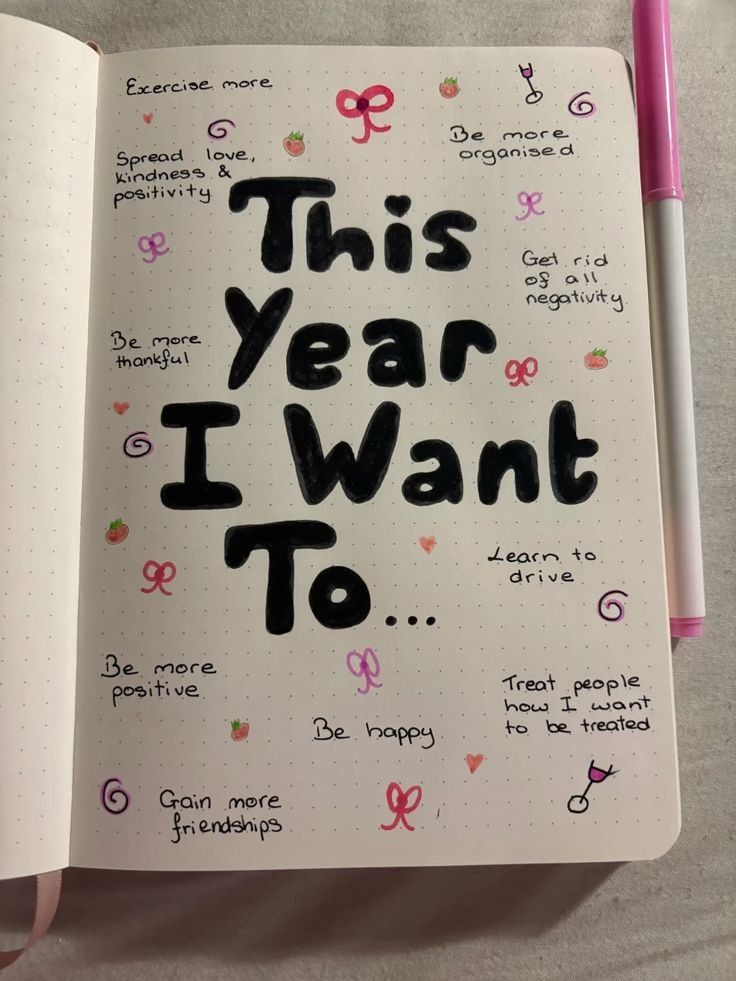 Exercise more
Be more
organised
Spread love,
kindness &
positivity
This
Get rid
of all
negativity.
Year
Be more
thankful
I Want
To...
Learn to
drive
Be more
positive
Treat people
how I want
to be treated
Be happy
Gain more
friendships